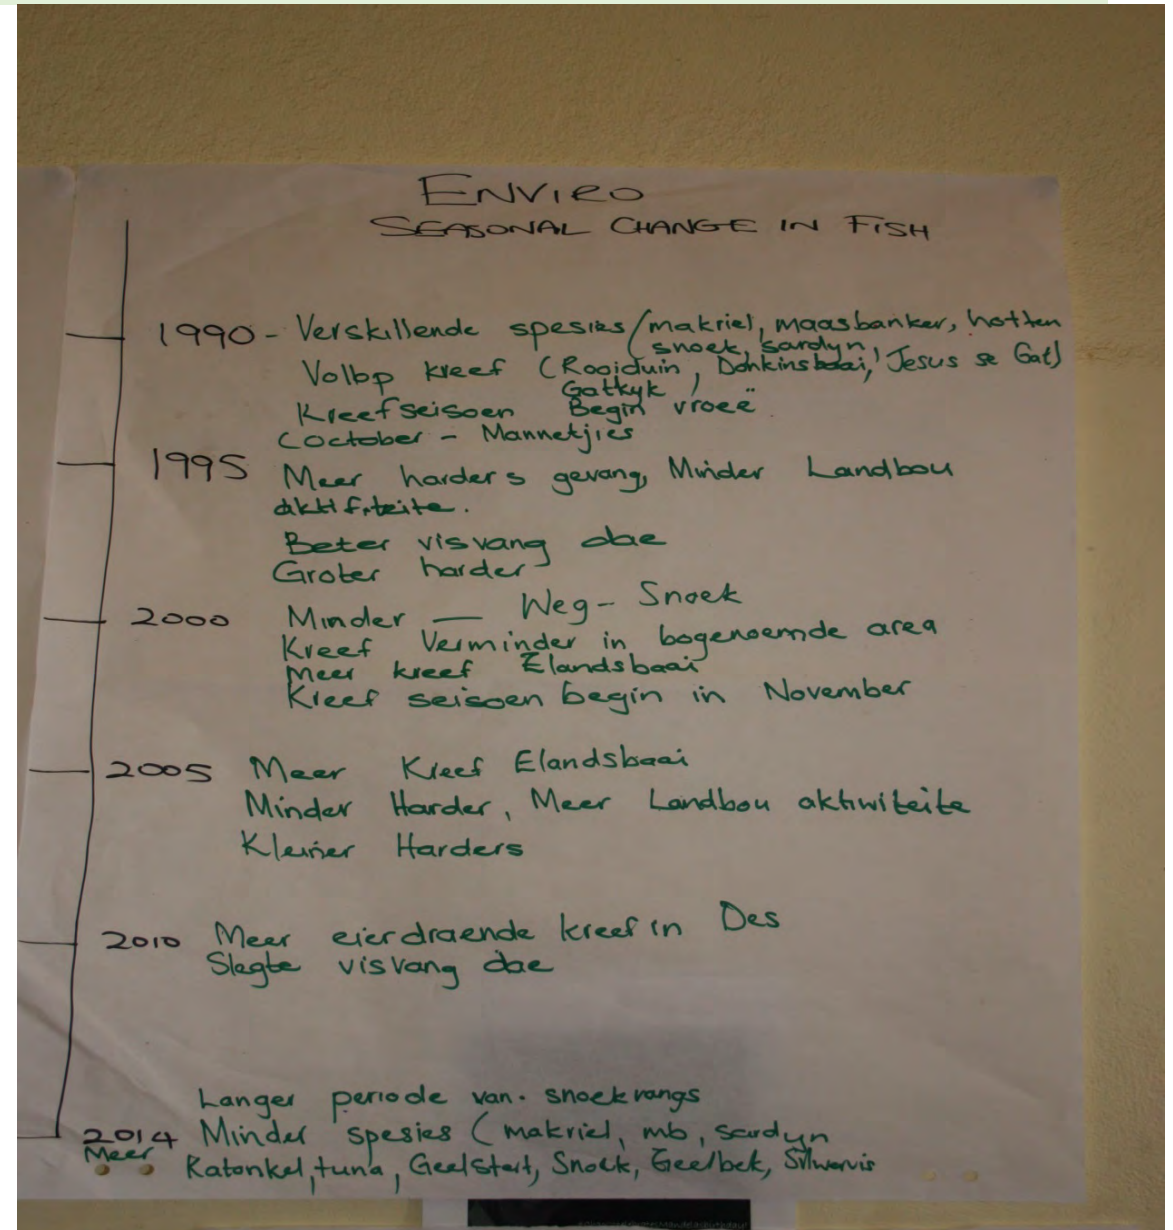 ENVIRO
SEASONAL CHANGE IN FISH
1990 - Verskillende spesies (makriel, maasbanker, hotten
snoek, sardyn,
Volop kreef (Rooiduin, Donkinsbaai, Jesus se Gat)
Gatkyk)
Kreefseisoen Begin vroeë
(October - Mannetjies
1995 Meer harders gevang, Minder Landbou
aktifiteite.
Beter visvang dae
Groter harder
2000 Minder — Weg - Snoek
Kreef Verminder in bogenoemde area
Meer kreef Elandsbaai
Kreef seisoen begin in November
2005 Meer Kreef Elandsbaai
Minder Harder, Meer Landbou aktiwiteite
Kleiner Harders
2010 Meer eierdraende kreef in Des
Slegte visvang dae
Langer periode van. snoekvangs
2014 Minder spesies (makriel, mb, sardyn
Meer Katonkel, tuna, Geelstert, Snoek, Geelbek, Silwervis